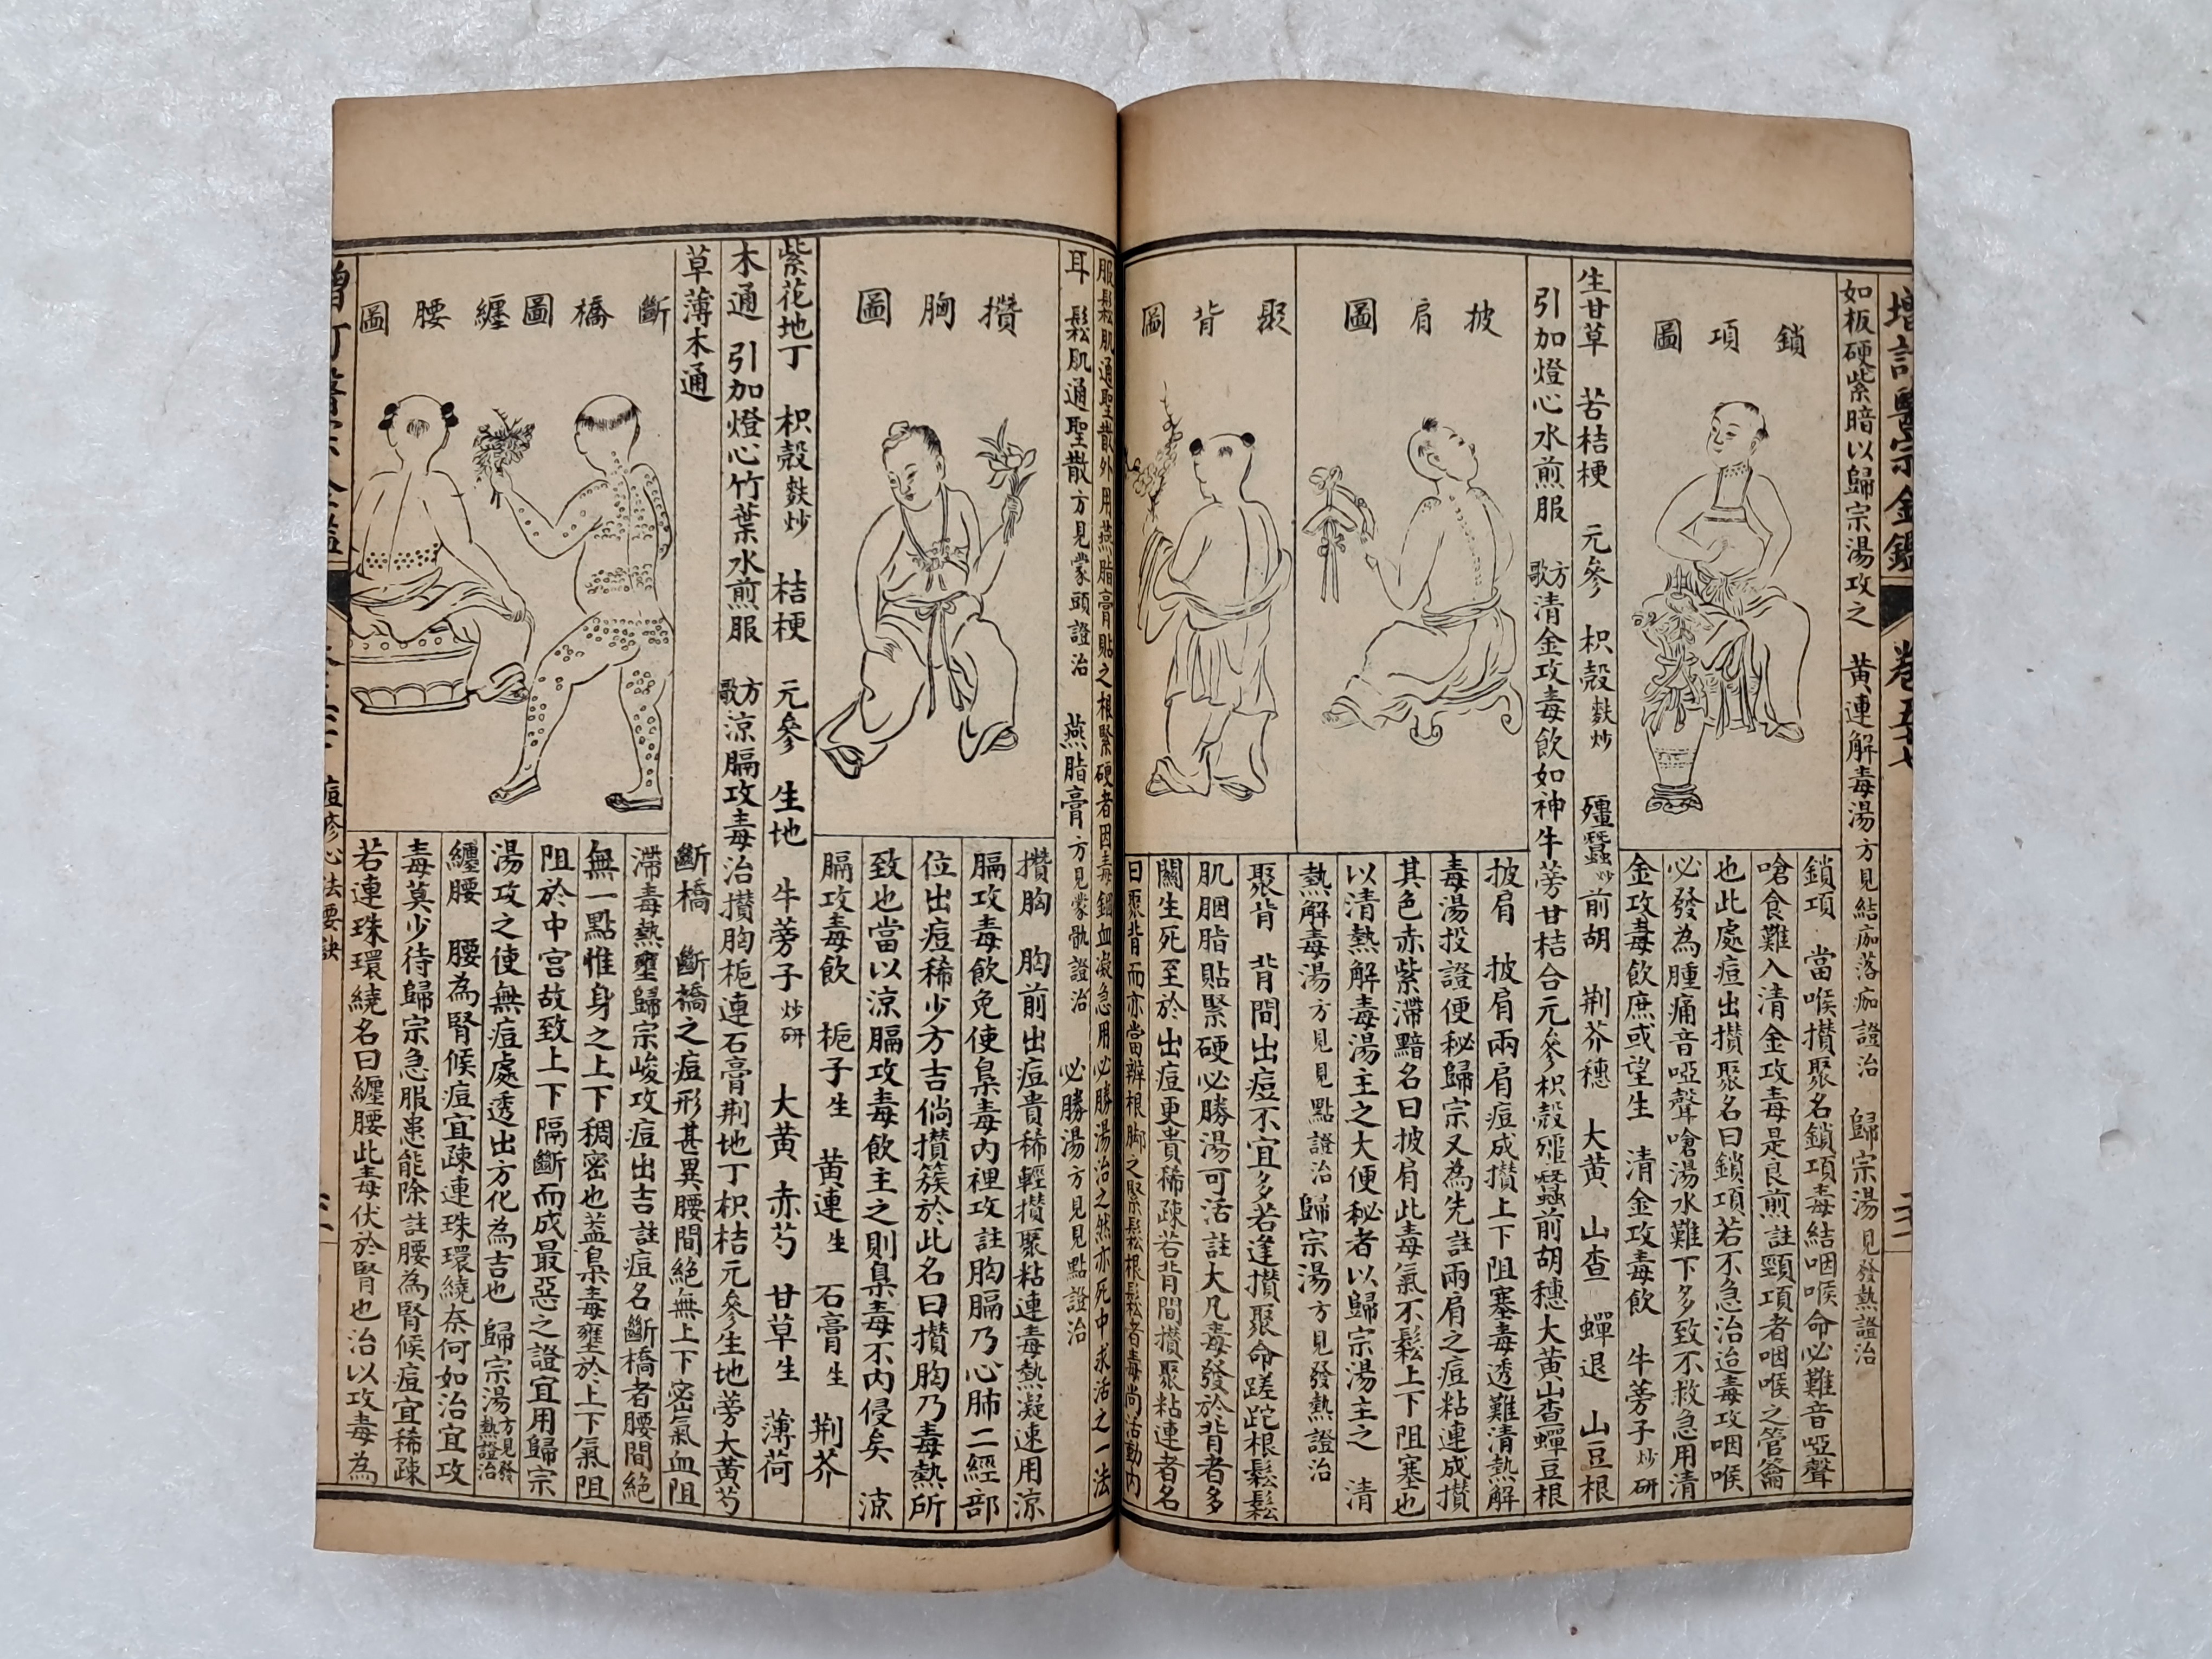 增訂醫宗金鑑 卷五十七
如板硬紫暗以歸宗湯攻之 黃連解毒湯方見結痂落痂證治 歸宗湯見發熱證治
鎖項圖
鎖項 當喉攢聚名鎖項毒結咽喉命必難音啞聲
嗆食難入清金攻毒是良煎註頸項者咽喉之管籥
也此處痘出攢聚名曰鎖項若不急治迨毒攻咽喉
必發為腫痛音啞聲嗆湯水難下多致不救急用清
金攻毒飲庶或望生 清金攻毒飲 牛蒡子炒研
生甘草 苦桔梗 元參 枳殼麩炒 殭蠶炒 前胡 荆芥穗 大黃 山查 蟬退 山豆根
引加燈心水煎服 方歌清金攻毒飲如神牛蒡甘桔合元參枳殼殭蠶前胡穗大黃山查蟬豆根
披肩圖
披肩 披肩兩肩痘成攢上下阻塞毒透難清熱解
毒湯投證便秘歸宗又為先註兩肩之痘粘連成攢
其色赤紫滯黯名曰披肩此毒氣不鬆上下阻塞也
以清熱解毒湯主之大便秘者以歸宗湯主之 清
熱解毒湯方見見點證治歸宗湯方見發熱證治
聚背圖
聚背 背間出痘不宜多若逢攢聚命蹉跎根鬆鬆
肌胭脂貼緊硬必勝湯可活註大凡毒發於背者多
關生死至於出痘更貴稀疎若背間攢聚粘連者名
曰聚背而亦當辨根脚之緊鬆根鬆者毒尚活動內
服鬆肌通聖散外用燕脂膏貼之根緊硬者因毒錮血凝急用必勝湯治之然亦死中求活之一法
耳 鬆肌通聖散方見蒙頭證治 燕脂膏方見蒙骩證治 必勝湯方見見點證治
攢胸圖
攢胸 胸前出痘貴稀輕攢聚粘連毒熱凝速用涼
膈攻毒飲免使梟毒內裡攻註胸膈乃心肺二經部
位出痘稀少方吉倘攢簇於此名曰攢胸乃毒熱所
致也當以涼膈攻毒飲主之則梟毒不內侵矣 涼
膈攻毒飲 梔子生 黃連生 石膏生 荆芥
紫花地丁 枳殼麩炒 桔梗 元參 生地 牛蒡子炒研 大黃 赤芍 甘草生 薄荷
木通 引加燈心竹葉水煎服 方歌涼膈攻毒治攢胸梔連石膏荆地丁枳桔元參生地蒡大黃芍
草薄木通
斷橋圖
纏腰圖
斷橋 斷橋之痘形甚異腰間絕無上下密氣血阻
滯毒熱壅歸宗峻攻痘出吉註痘名斷橋者腰間絕
無一點惟身之上下稠密也蓋梟毒壅於上下氣阻
阻於中宮故致上下隔斷而成最惡之證宜用歸宗
湯攻之使無痘處透出方化為吉也 歸宗湯方見發熱證治
纏腰 腰為腎候痘宜疎連珠環繞奈何如治宜攻
毒莫少待歸宗急服患能除註腰為腎候痘宜稀疎
若連珠環繞名曰纏腰此毒伏於腎也治以攻毒為
痘疹心法要訣